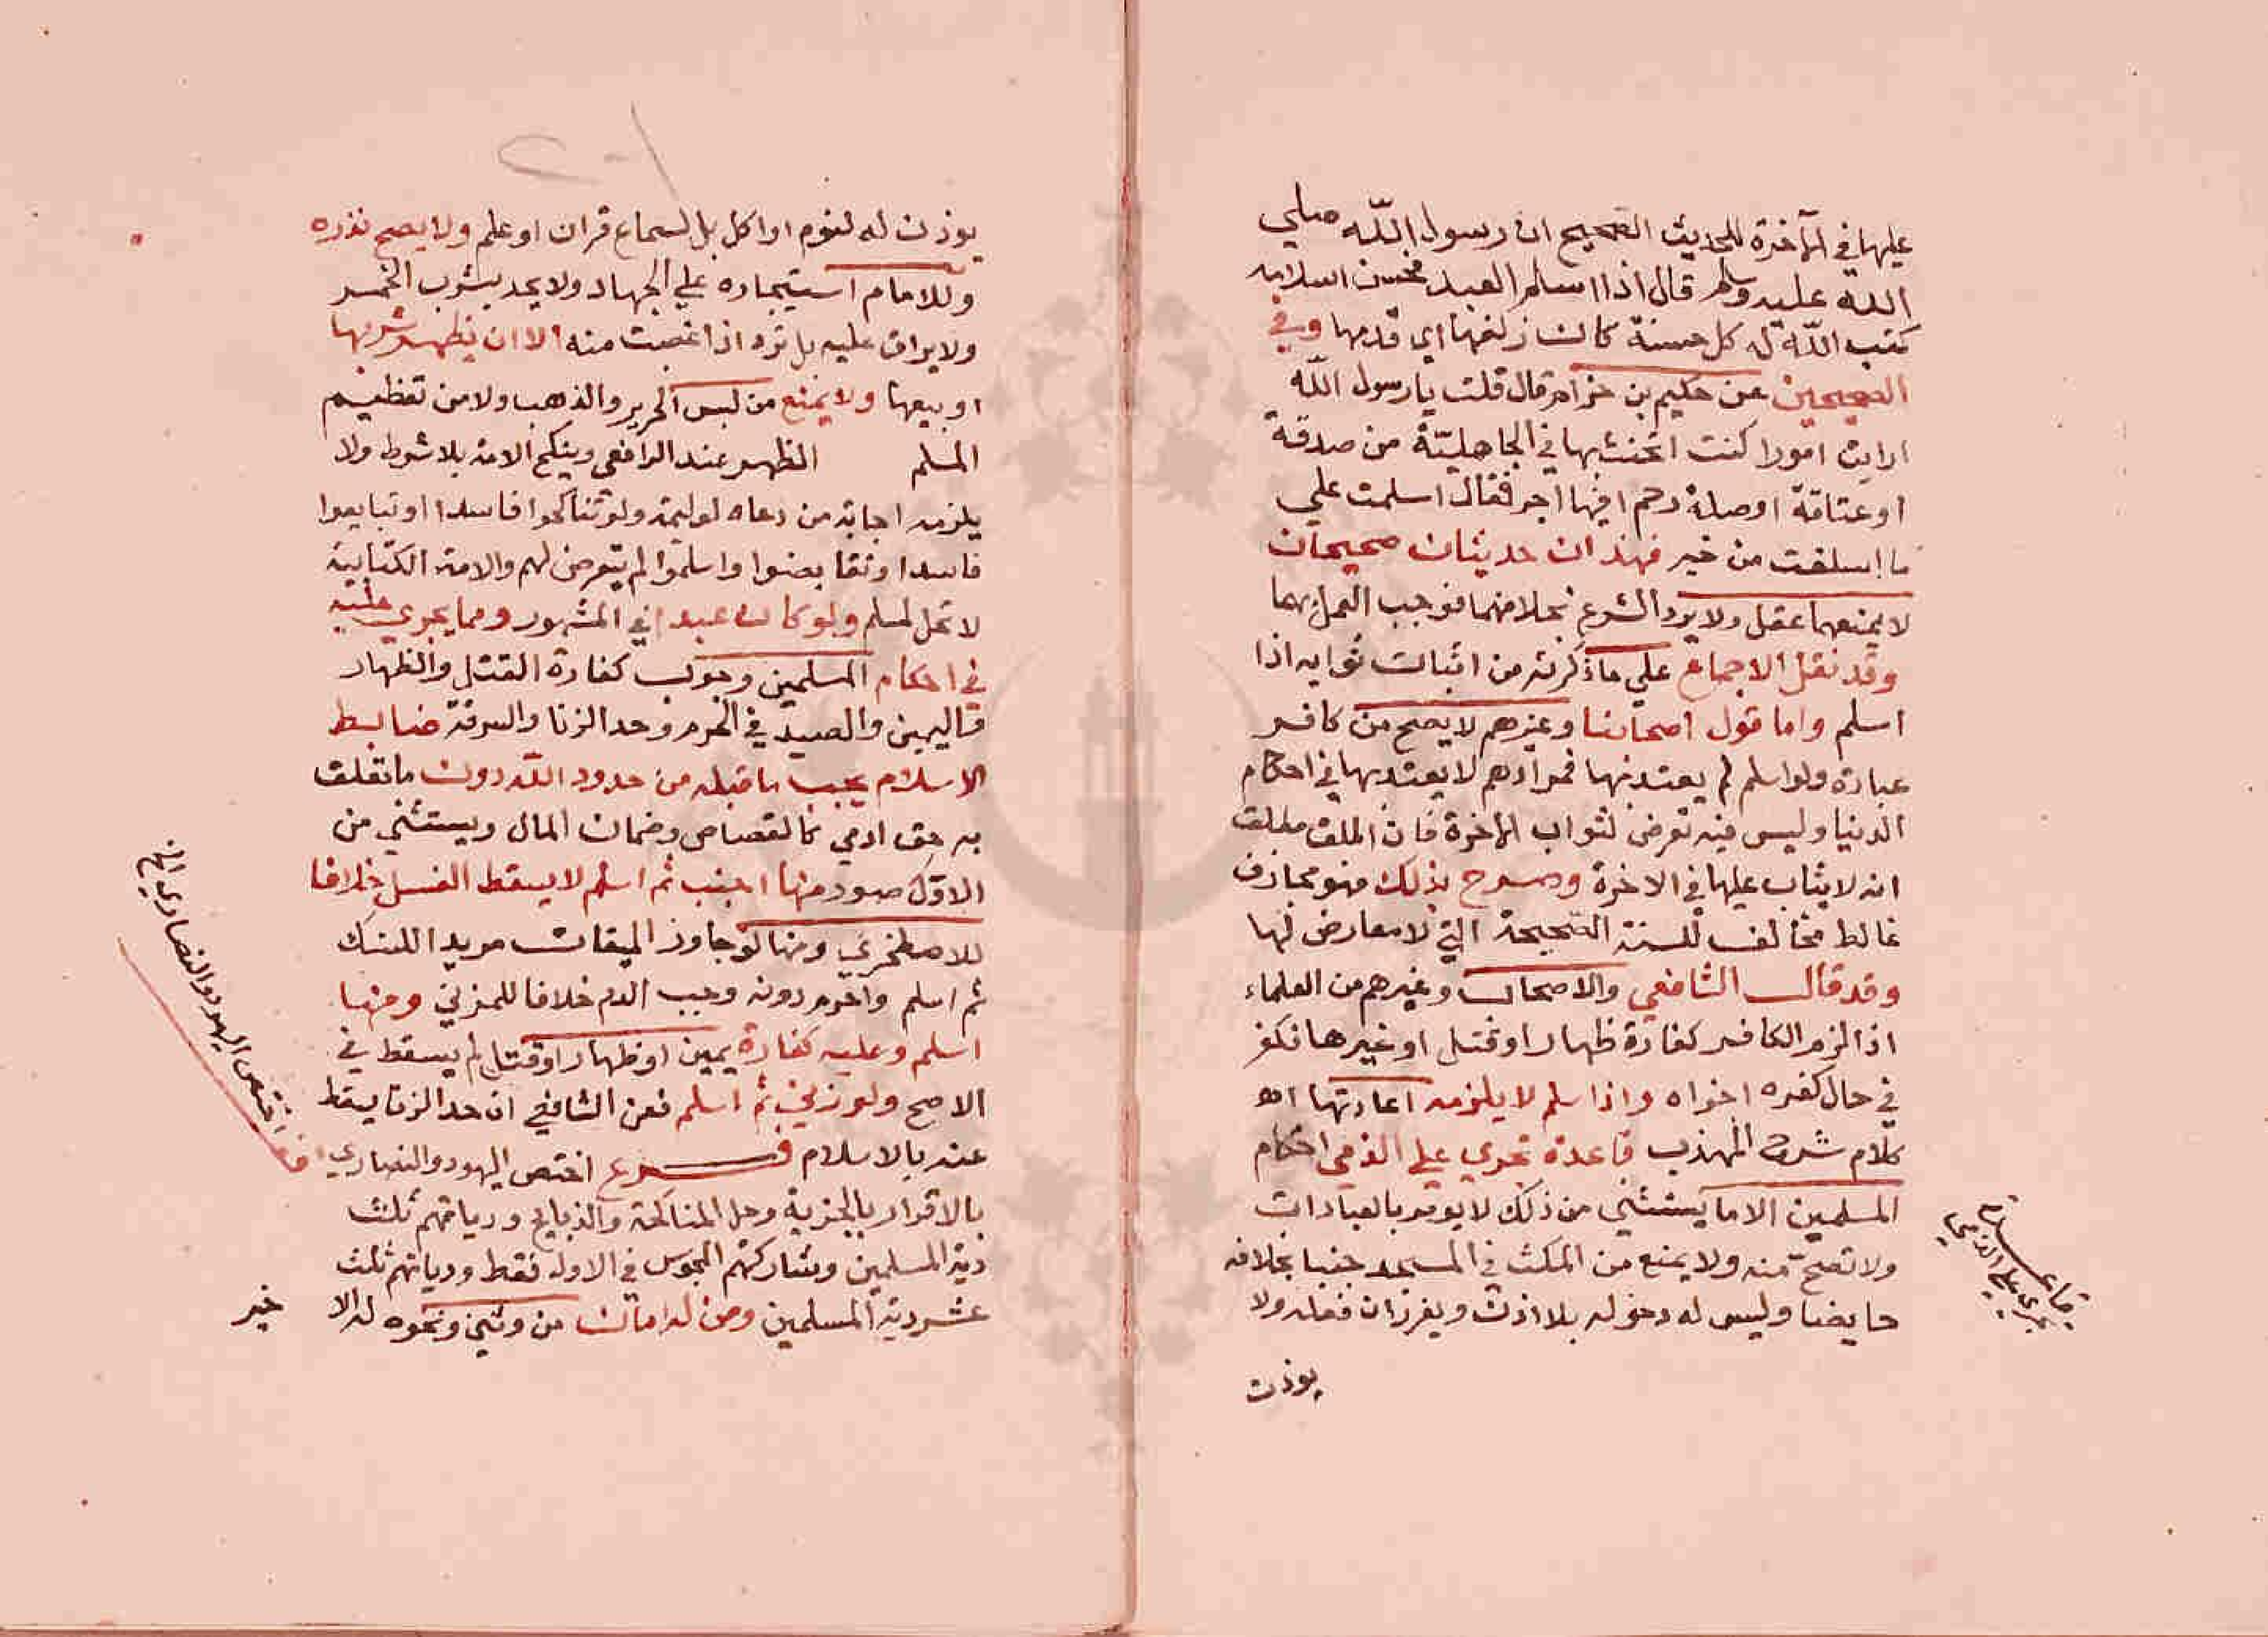 عليها في الآخرة للحديث الصحيح ان رسول اللّه صلي
اللّه عليه وسلم قال اذا اسلم العبد فحسن اسلامه
كتب اللّه له كل حسنة كان زلفها اي قدمها وفي
الصحيحين عن حكيم بن حزام قال قلت يا رسول اللّه
ارايت امورا كنت اتحنث بها في الجاهليّة من صدقة
او عتاقة او صلة رحم افيها اجر فقال اسلمت علي
ما اسلفت من خير فهذان حديثان صحيحان
لا يمنعهما عقل ولا يرد الشرع بخلافهما فوجب العمل بهما
وقد نقل الاجماع علي ما ذكرته من اثبات ثوابه اذا
اسلم واما قول اصحابنا وغيرهم لا يصح من كافر
عبادة ولو اسلم لم يعتد بها فمرادهم لا يعتد بها في احكام
الدنيا وليس فيه تعرض لثواب الآخرة فان اطلق مطلق
انه لا يثاب عليها في الاخرة وصرح بذلك فهو مجازف
غالط مخالف للسنة الصحيحة التي لا معارض لها
وقد قال الشافعي والاصحاب وغيرهم من العلماء
اذا لزم الكافر كفارة ظهار او قتل او غيرها فكفر
في حال كفره اجزاه واذا سلم لا يلزمه اعادتها اهـ
كلام شرح المهذب قاعدة تجري علي الذمي احكام
المسلمين الا ما يستثني من ذلك لا يومر بالعبادات
ولا تصح منه ولا يمنع من المكث في المسجد جنبا بخلافه
حايضا وليس له دخوله بلا اذن ويعزر ان فعله ولا
يوذن
قاعدة
تجري علي الذمي
يوذن له لنوم او اكل بل لسماع قران او علم ولا يصح نذره
وللامام استيجاره علي الجهاد ولا يحد بشرب الخمر
ولا يراق عليه بل ترد اذا غصبت منه الا ان يظهر شربها
او بيعها ولا يمنع من لبس الحرير والذهب ولا من تعظيم
المسلم الظهر عند الرافعي وينكح الامة بلا شرط ولا
يلزمه اجابة من دعاه لوليمة ولو تناكحوا فاسدا او تبايعوا
فاسدا وتقابضوا واسلموا لم يتعرض لهم والامة الكتابية
لا تحل لمسلم ولو كان عبدا في المشهور ومما يجري عليه
في احكام المسلمين وجوب كفارة القتل والظهار
واليمين والصيد في الحرم وحد الزنا والسرقة ضابط
الاسلام يجب ما قبله من حدود اللّه دون ما تعلق
به حق ادمي كالقصاص وضمان المال ويستثني من
الاول صور منها اجنب ثم اسلم لا يسقط الغسل خلافا
للاصطخري ومنها لو جاوز الميقات مريدا للنسك
ثم اسلم واحرم دونه وجب الدم خلافا للمزني ومنها
اسلم وعليه كفارة يمين او ظهار او قتل لم يسقط في
الاصح ولو زني ثم اسلم فعن الشافعي ان حد الزنا يسقط
عنه بالاسلام فــــرع اختص اليهود والنصاري
بالاقرار بالجزية وحل المناكحة والذبايح ودياتهم ثلث
دية المسلمين وشاركهم المجوس في الاول فقط ودياتهم ثلث
عشر دية المسلمين ومن له امان من وثني ونحوه له الا
خير
اختص اليهود والنصاري الخ